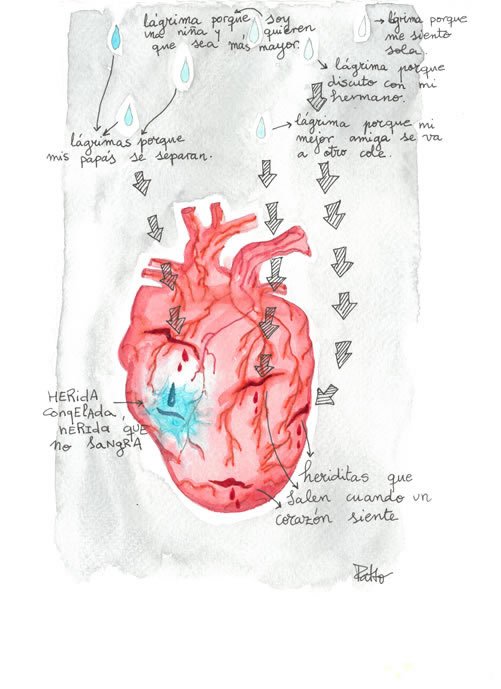 lágrima porque soy
una niña y quieren
que sea más mayor.
lágrima porque
me siento
sola.
lágrima porque
discuto con mi
hermano.
lágrima porque mi
mejor amiga se va
a otro cole.
lágrimas porque
mis papás se separan.
HERIDA
CONGELADA,
HERIDA QUE
NO SANGRA
heriditas que
salen cuando un
corazón siente